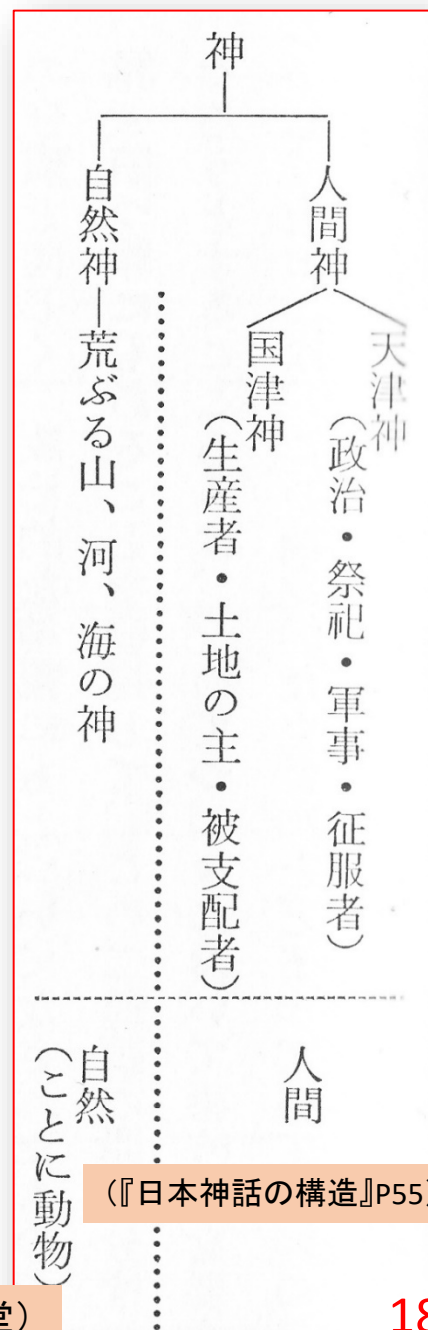 神
人間神
天津神
(政治・祭祀・軍事・征服者)
国津神
(生産者・土地の主・被支配者)
自然神―荒ぶる山、河、海の神
人間
自然
(ことに動物)
(『日本神話の構造』P55)
堂)
18